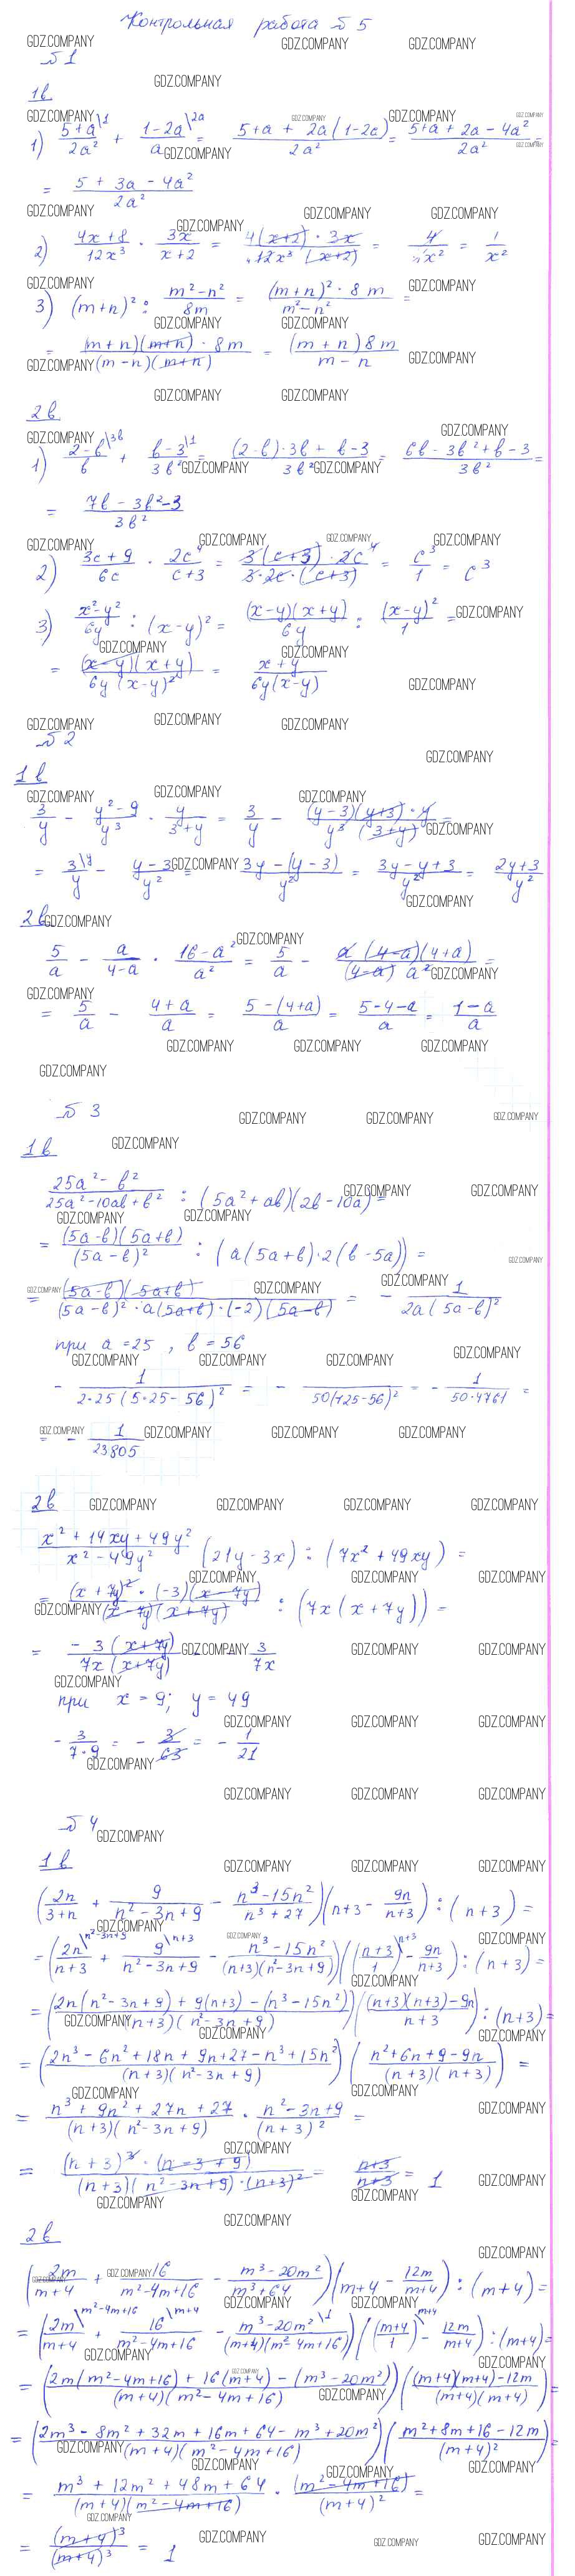 Контрольная работа №5
№1
1в
1) (5+a)/(2a²) + (1-2a)/a = (5+a + 2a(1-2a))/(2a²) = (5+a + 2a - 4a²)/(2a²) =
= (5 + 3a - 4a²)/(2a²)
2) (4x+8)/(12x³) · (3x)/(x+2) = (4(x+2) · 3x)/(12x³(x+2)) = = 1/x²
3) (m+n)² : (m²-n²)/(8m) = ((m+n)² · 8m)/(m²-n²) =
= ((m+n)(m+n) · 8m)/((m-n)(m+n)) = ((m+n)8m)/(m-n)
2в
1) (2-b)/b + (b-3)/(3b²) = ((2-b)·3b + b-3)/(3b²) = (6b - 3b² + b - 3)/(3b²) =
= (7b - 3b² - 3)/(3b²)
2) (3c+9)/(6c) · (2c⁴)/(c+3) = (3(c+3) · 2c⁴)/(3·2c·(c+3)) = c³/1 = c³
3) (x²-y²)/(6y) : (x-y)² = ((x-y)(x+y))/(6y) : (x-y)²/1 =
= ((x-y)(x+y))/(6y(x-y)²) = (x+y)/(6y(x-y))
№2
1в
3/y - (y²-9)/y³ · y/(3+y) = 3/y - ((y-3)(y+3)·y)/(y³(3+y)) =
= 3/y - (y-3)/y² = (3y-(y-3))/y² = (3y-y+3)/y² = (2y+3)/y²
2в
5/a - a/(4-a) · (16-a²)/a² = 5/a - (a(4-a)(4+a))/((4-a)a²) =
= 5/a - (4+a)/a = (5-(4+a))/a = (5-4-a)/a = (1-a)/a
№3
1в
(25a²-b²)/(25a²-10ab+b²) : (5a²+ab)(2b-10a) =
= ((5a-b)(5a+b))/((5a-b)²) : (a(5a+b)·2(b-5a)) =
= ((5a-b)(5a+b))/((5a-b)²·a(5a+b)·(-2)(5a-b)) = - 1/(2a(5a-b)²)
при a=25, b=56
- 1/(2·25(5·25-56)²) = - 1/(50(125-56)²) = - 1/(50·4761) =
= - 1/23805
2в
(x²+14xy+49y²)/(x²-49y²) (21y-3x) : (7x²+49xy) =
= ((x+7y)²·(-3)(x-7y))/((x-7y)(x+7y)) : (7x(x+7y)) =
= (-3(x+7y))/(7x(x+7y)) 3/(7x)
при x=9; y=49
- 3/(7·9) = - 3/63 = - 1/21
№4
1в
(2n/(3+n) + 9/(n²-3n+9) - (n³-15n²)/(n³+27))(n+3 - 9n/(n+3)) : (n+3) =
= (2n/(n+3) + 9/(n²-3n+9) - (n³-15n²)/((n+3)(n²-3n+9)))((n+3)/1 - 9n/(n+3)) : (n+3) =
= ((2n(n²-3n+9) + 9(n+3) - (n³-15n²))/((n+3)(n²-3n+9)))(((n+3)(n+3)-9n)/(n+3)) : (n+3) =
= ((2n³-6n²+18n+9n+27-n³+15n²)/((n+3)(n²-3n+9)))((n²+6n+9-9n)/((n+3)(n+3))) =
= (n³+9n²+27n+27)/((n+3)(n²-3n+9)) · (n²-3n+9)/(n+3)² =
= ((n+3)³·(n-3+9))/((n+3)(n²-3n+9)·(n+3)²) = (n+3)/(n+3) = 1
2в
(2m/(m+4) + 16/(m²-4m+16) - (m³-20m²)/(m³+64))(m+4 - 12m/(m+4)) : (m+4) =
= (2m/(m+4) + 16/(m²-4m+16) - (m³-20m²)/((m+4)(m²-4m+16)))((m+4)/1 - 12m/(m+4)) : (m+4) =
= ((2m(m²-4m+16) + 16(m+4) - (m³-20m²))/((m+4)(m²-4m+16)))(((m+4)(m+4)-12m)/((m+4)(m+4))) =
= ((2m³-8m²+32m+16m+64-m³+20m²)/((m+4)(m²-4m+16)))((m²+8m+16-12m)/(m+4)²) =
= (m³+12m²+48m+64)/((m+4)(m²-4m+16)) · (m²-4m+16)/(m+4)² =
= (m+4)³/(m+4)³ = 1
GDZ.COMPANY